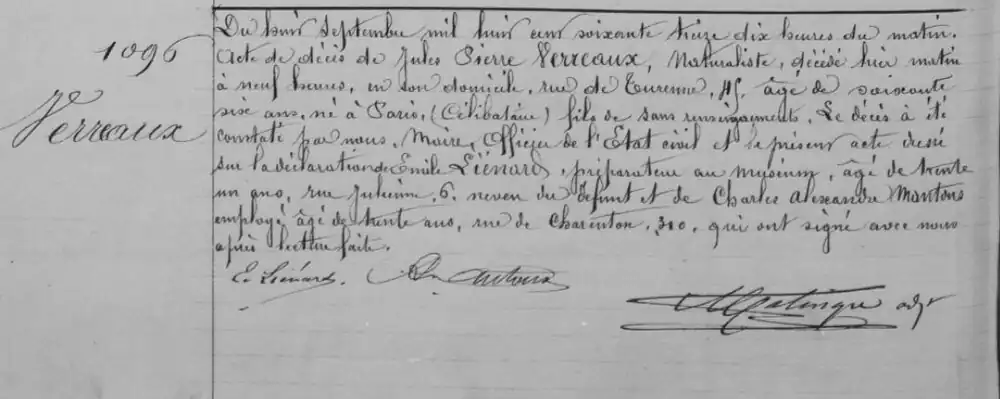 1096
Verreaux
Du huit Septembre mil huit cent soixante treize dix heures du matin.
Acte de décès de Jules Pierre Verreaux, Naturaliste, décédé hier matin
à neuf heures, en son domicile, rue de Turenne, 45, âgé de soixante
six ans, né à Paris, (Célibataire) fils de sans renseignements. Le décès a été
constaté par nous, Maire, Officier de l'Etat civil et le présent acte dressé
sur la déclaration de Emile Liénard, préparateur au muséum, âgé de trente
un ans, rue Julienne, 6. neveu du défunt et de Charles Alexandre Montons
employé âgé de trente ans, rue de Charenton, 310, qui ont signé avec nous
après lecture faite.
E. Liénard.
adjt